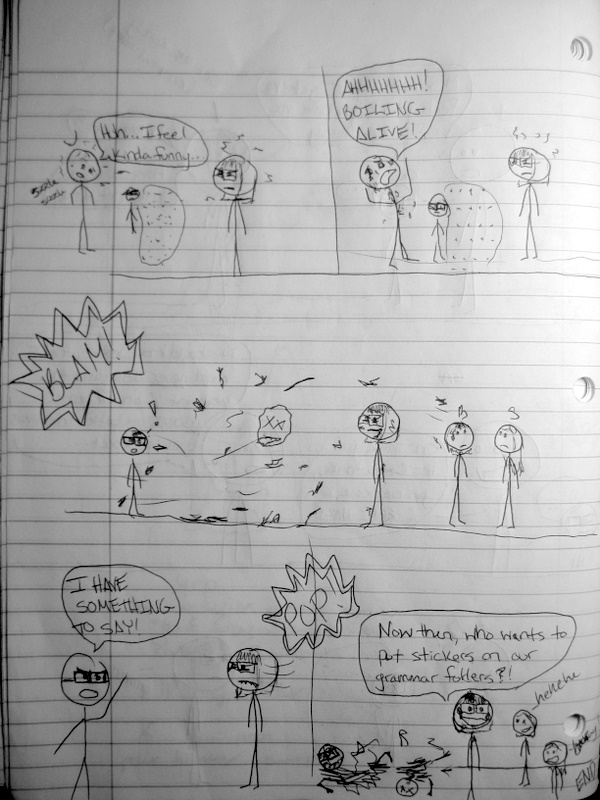 Huh... I feel
kinda funny..
sizzle
sizzle
AHHHHHHH!
BOILING
ALIVE!
BLAM!
B
S
I HAVE
SOMETHING
TO SAY!
POP!
Now then, who wants to
put stickers on our
grammar folders?!
hehehe
END